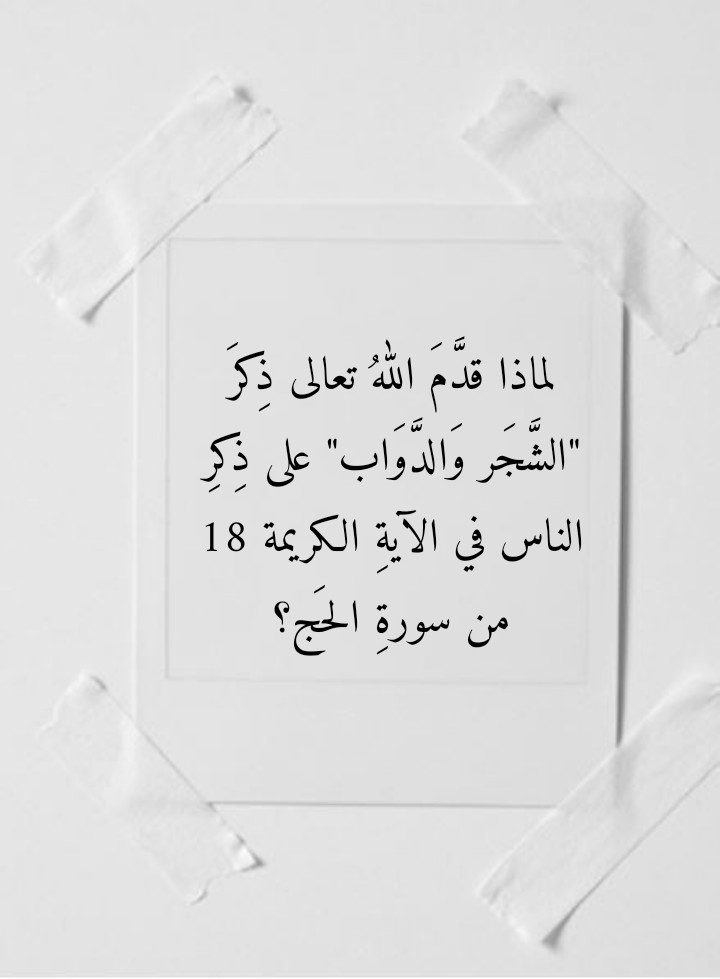 لماذا قدَّمَ اللهُ تعالى ذِكرَ
"الشَّجَر وَالدَّوَاب" على ذِكرِ
الناس في الآيةِ الكريمة 18
من سورةِ الحَج؟